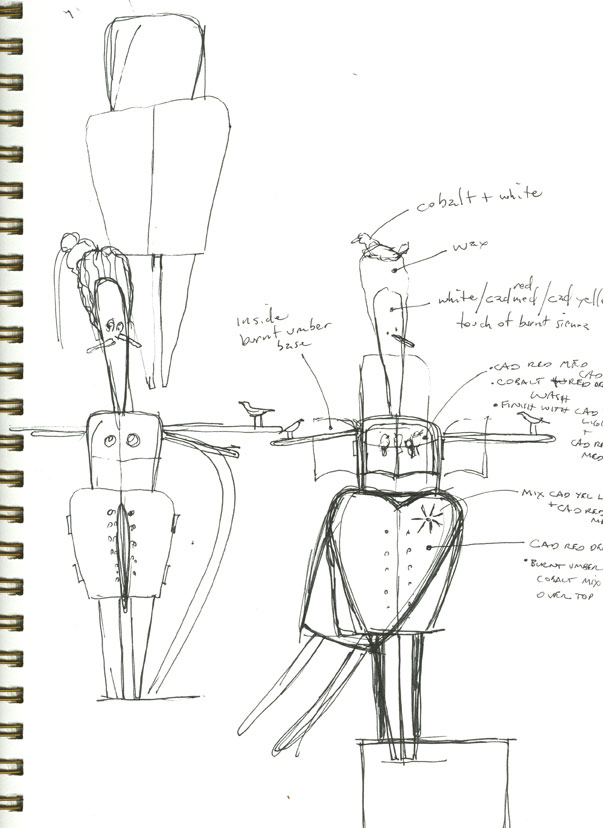 cobalt + white
wax
red
white/cad med/cad yell
touch of burnt sienna
inside
burnt umber
base
• CAD RED MED
CAD
• COBALT RED
WASH
• FINISH WITH CAD
LIG
+
CAD RE
MED
MIX CAD YEL L
+ CAD RED
M
CAD RED DE
• BURNT UMBER
COBALT MIX
OVER TOP